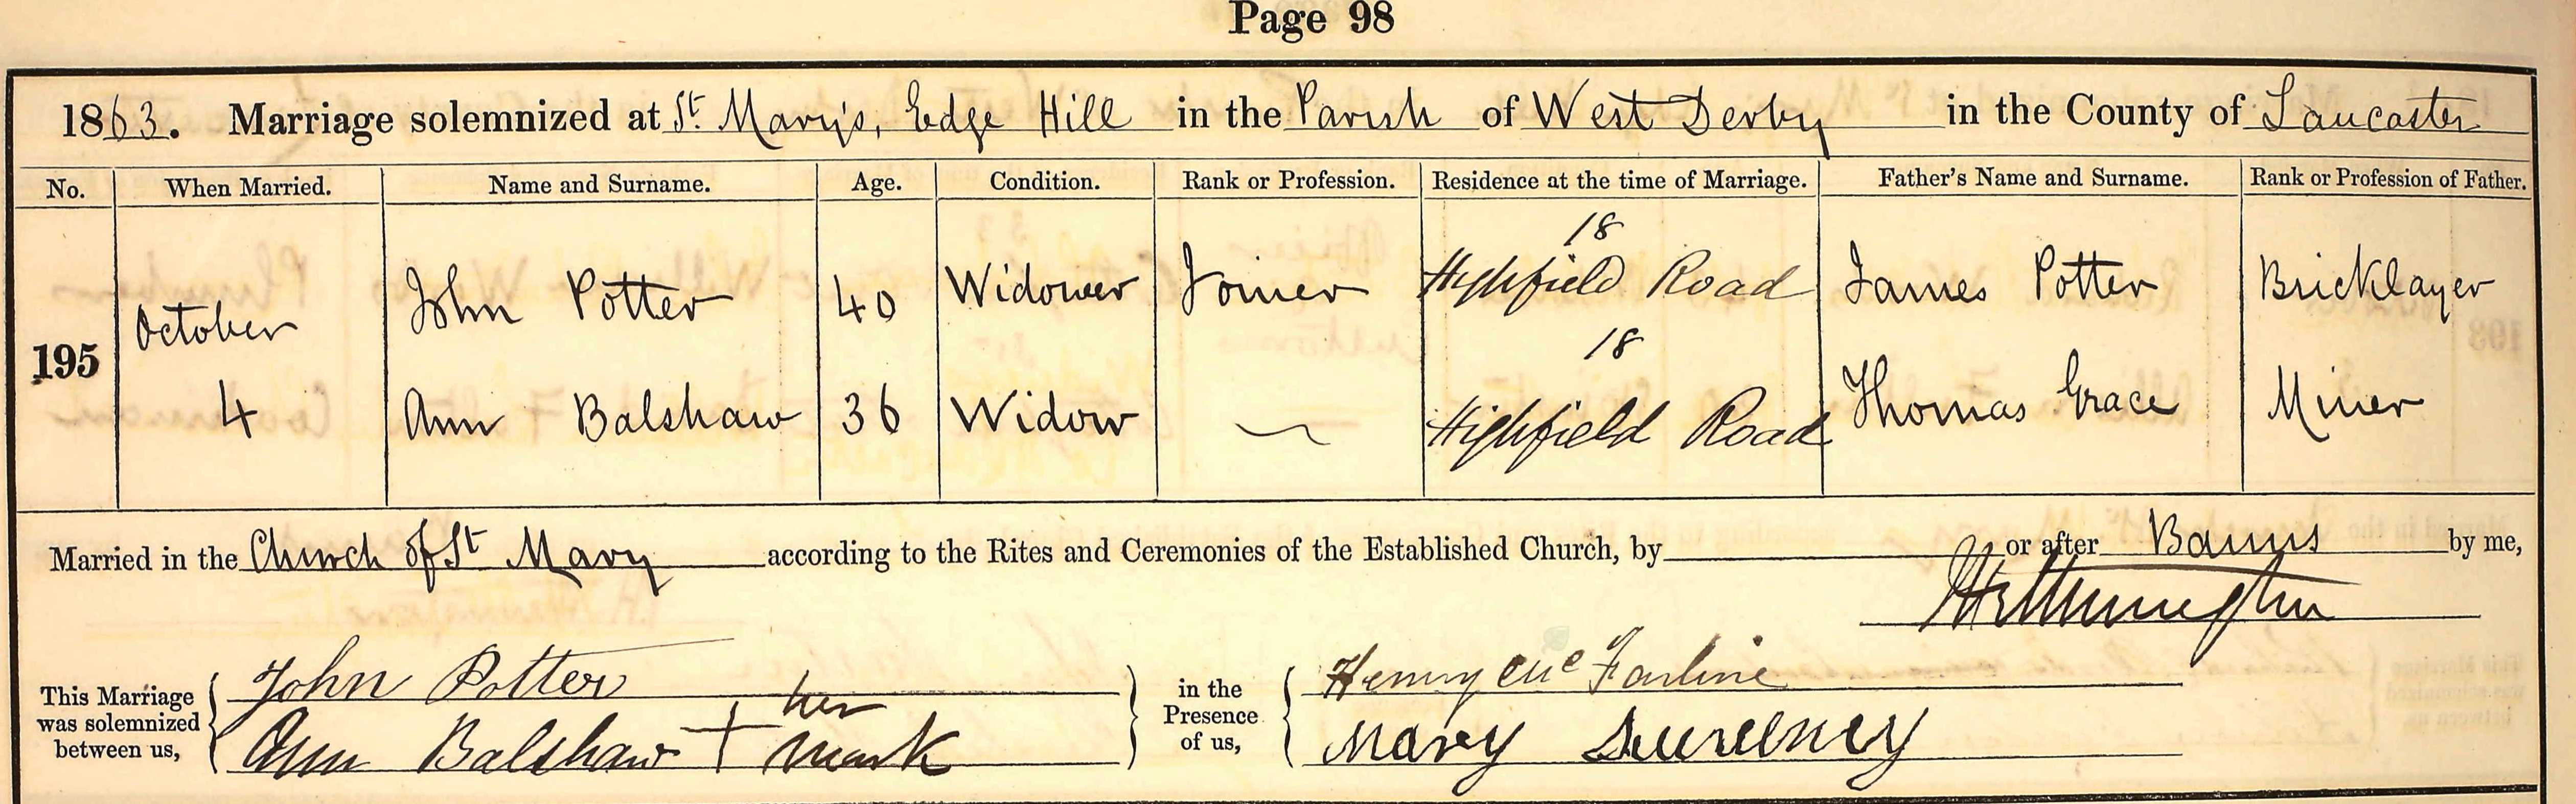 Page 98
1863. Marriage solemnized at St. Mary's, Edge Hill in the Parish of West Derby in the County of Lancaster
No. When Married. Name and Surname. Age. Condition. Rank or Profession. Residence at the time of Marriage. Father's Name and Surname. Rank or Profession of Father.
195 October 4
John Potter 40 Widower Joiner 18 Highfield Road James Potter Bricklayer
Ann Balshaw 36 Widow — 18 Highfield Road Thomas Grace Miner
Married in the Church of St Mary according to the Rites and Ceremonies of the Established Church, by or after Banns by me,
This Marriage was solemnized between us,
John Potter
Ann Balshaw + her mark
in the Presence of us,
Henry Mc Farline
Mary Sweeney